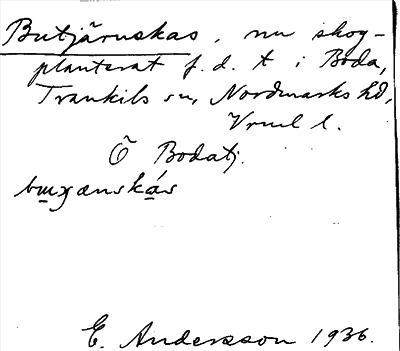 Butjärnskas, nu skog-
planterat f.d. t i Boda,
Trankils sn, Nordmarks hd,
Vrml l.
Ö Bodatj.
bɯꭓænskás
E. Andersson 1936.